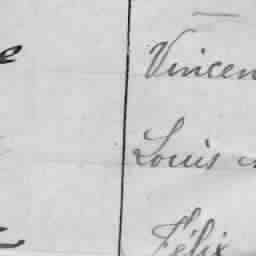 Vincen
Louis
Félix